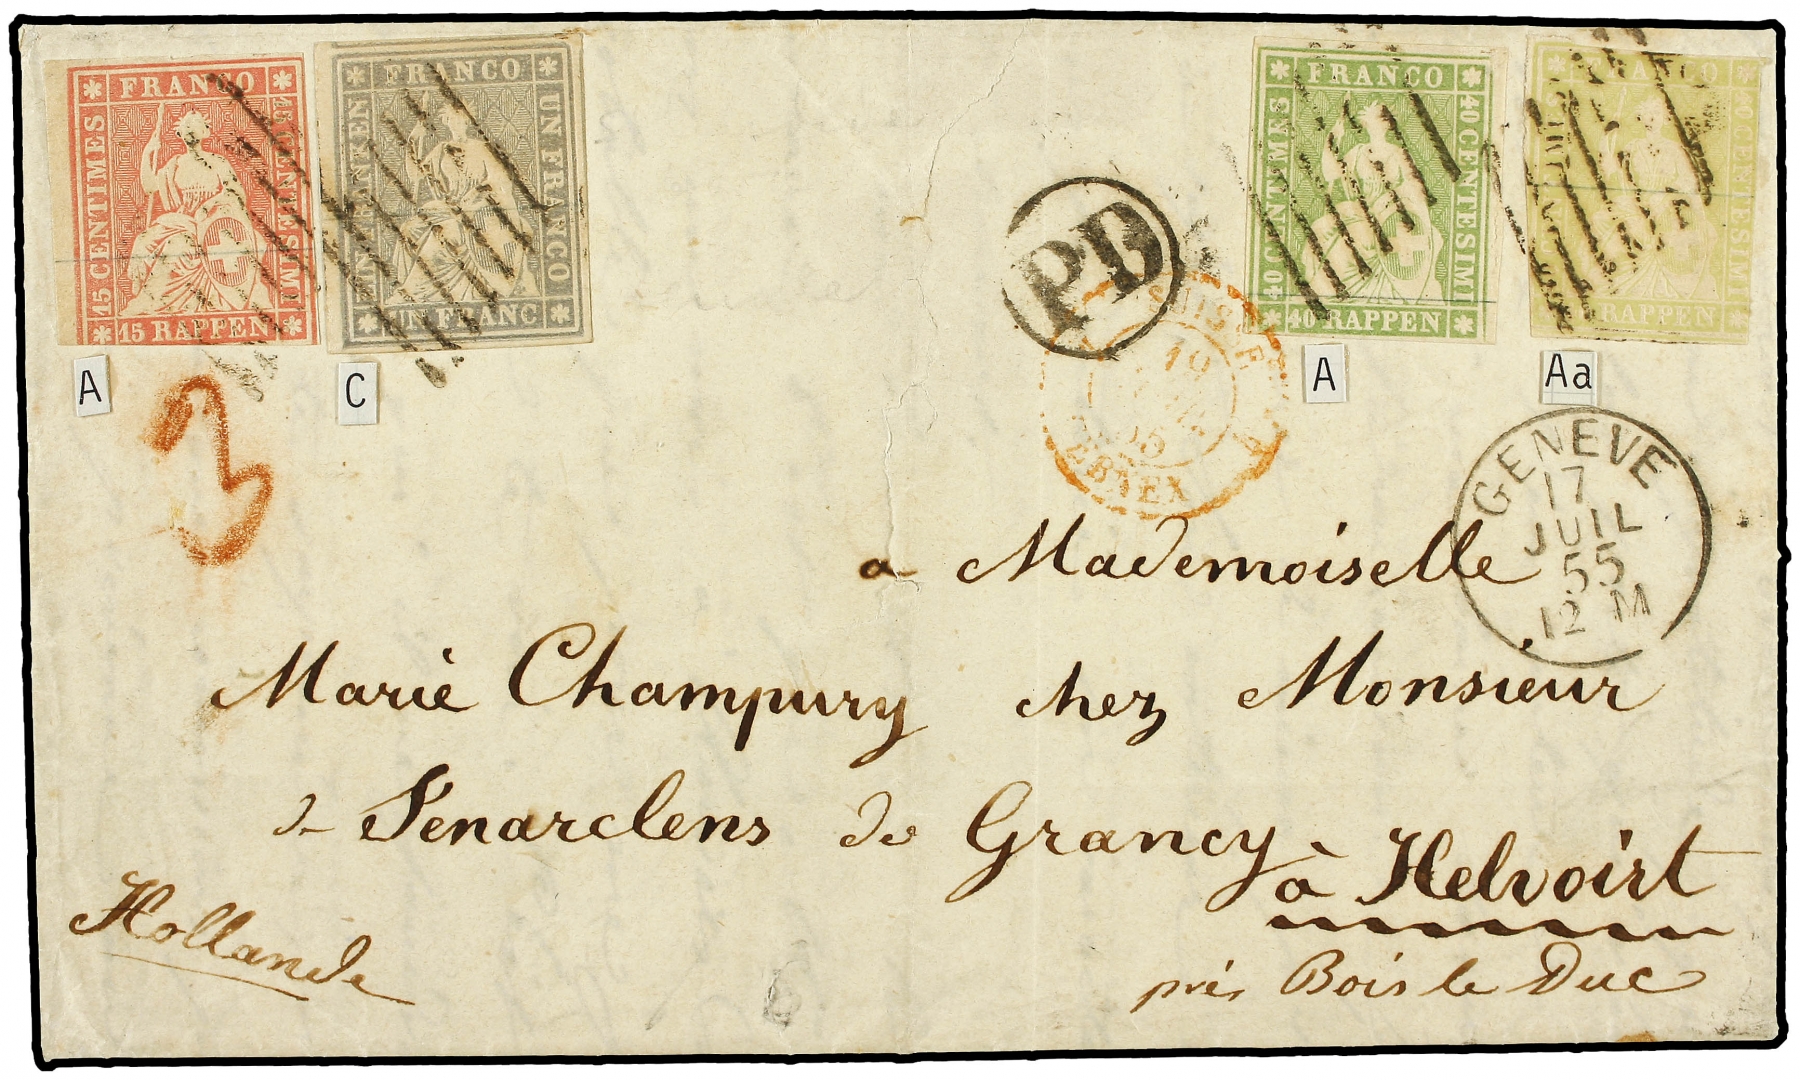 FRANCO
15 CENTIMES
15 CENTESIMI
15 RAPPEN
FRANCO
EIN FRANKEN
UN FRANCO
UN FRANC
FRANCO
40 CENTIMES
40 CENTESIMI
40 RAPPEN
FRANCO
CENTESIMI
RAPPEN
A
C
A
Aa
3
PD
SUISSE
FERNEX
GENEVE
17
JUIL
55
12 M
a Mademoiselle
Marie Champury chez Monsieur
de Senarclens de Grancy
à Helvoirt
Hollande
près Bois le Duc